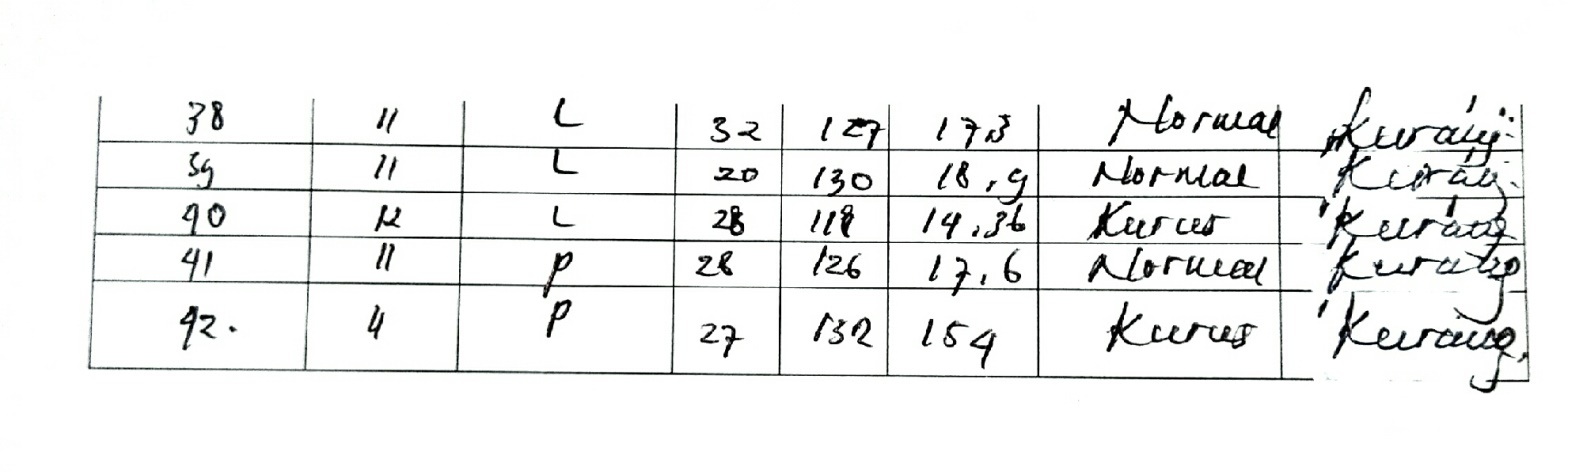 38 11 L 32 127 17,3 Normal Kurang
39 11 L 20 130 18,9 Normal Kurang
40 12 L 28 118 14,36 Kurus Kurang
41 11 P 28 126 17,6 Normal Kurang
42. 11 P 27 132 154 Kurus Kurang.